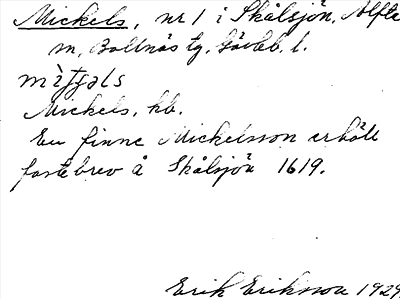 Mickels, nr 1 i Skålsjön, Alfta
sn, Bollnäs tg, Gävleb. l.
Mickels, kb.
En finne Mickelsson erhöll
fastebrev å Skålsjön 1619.
Erik Eriksson 1929